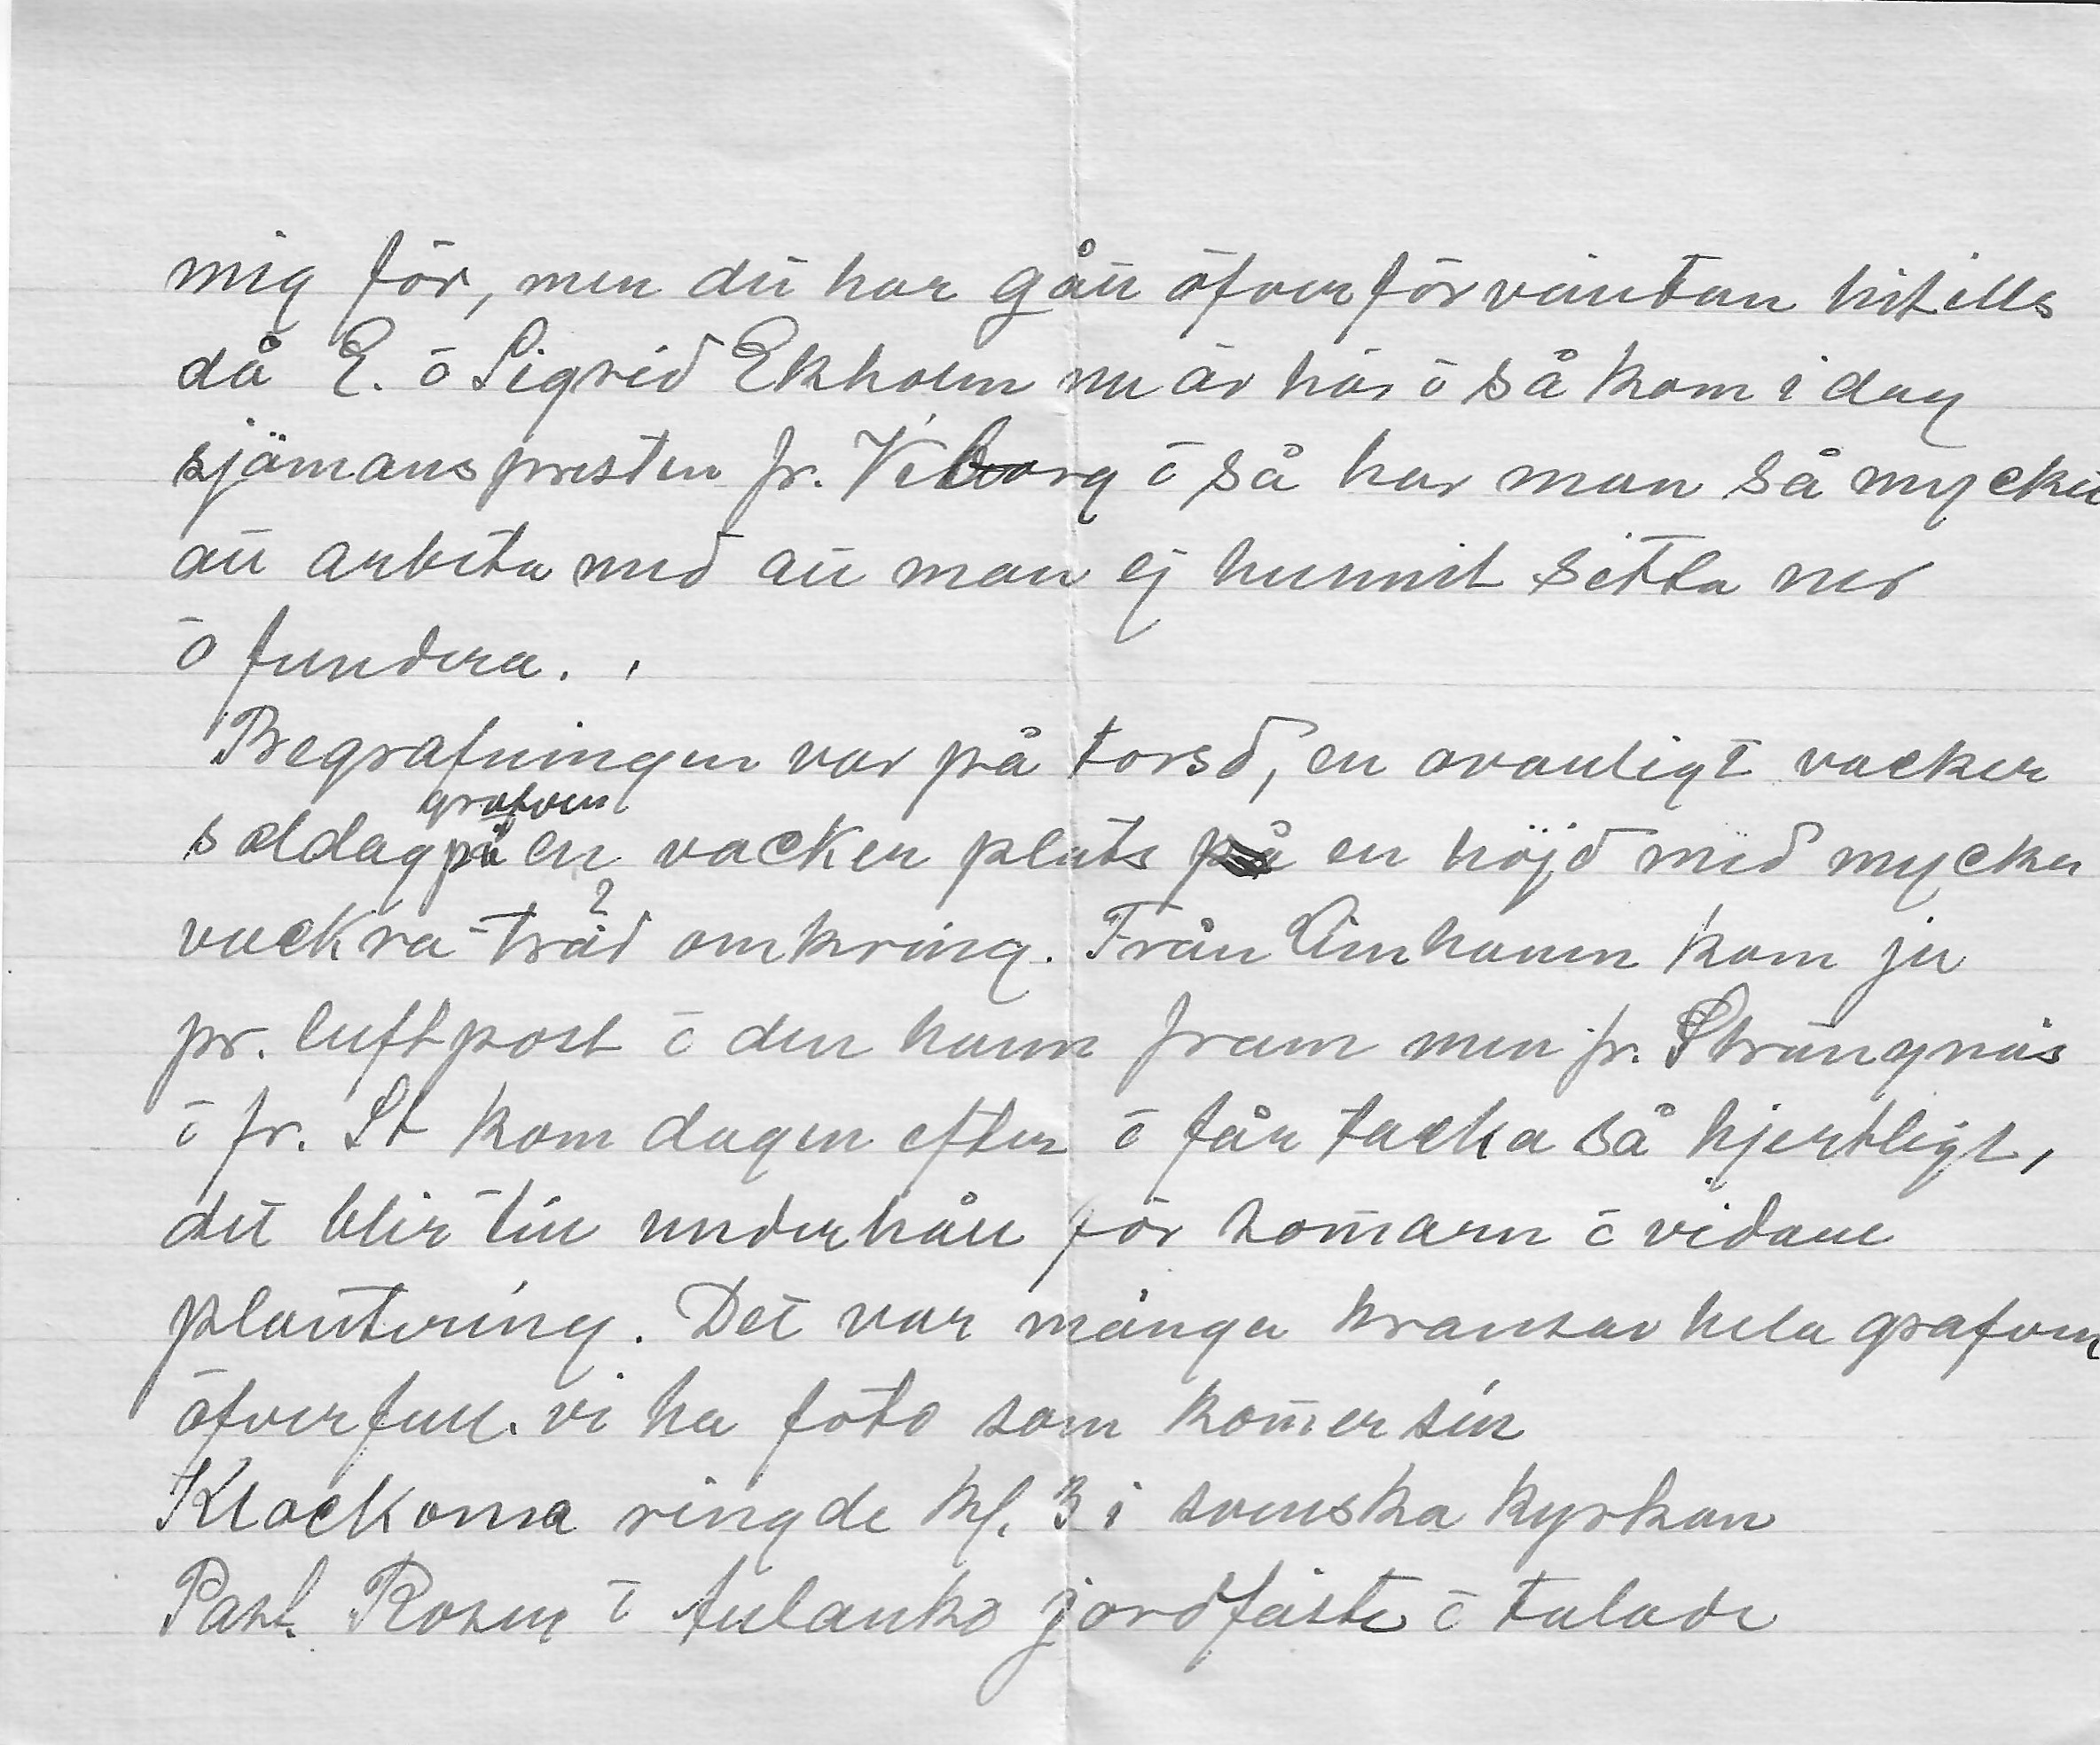 mig för, men det har gått öfver förväntan hittills
då E. o Sigrid Ekholm nu är här o så kom i dag
sjömanspresten fr. Viborg o så har man så mycket
att arbeta med att man ej hunnit sitta ned
o fundera.
Begrafningen var på torsd, en ovanligt vacker
soldag grafven på en vacker plats på en höjd med mycket
vackra träd omkring. Från kom ju
pr. luftpost o den hann fram men fr. Strängnäs
o fr. St kom dagen efter o får tacka så hjertligt,
det blir till underhåll för somarn o vidare
plantering. Det var många kransar hela grafven
öfverfull. vi ha foto som komer sen
Klockorna ringde kl. 3 i svenska kyrkan
Past. Rosen o Aulanko jordfäste o talade